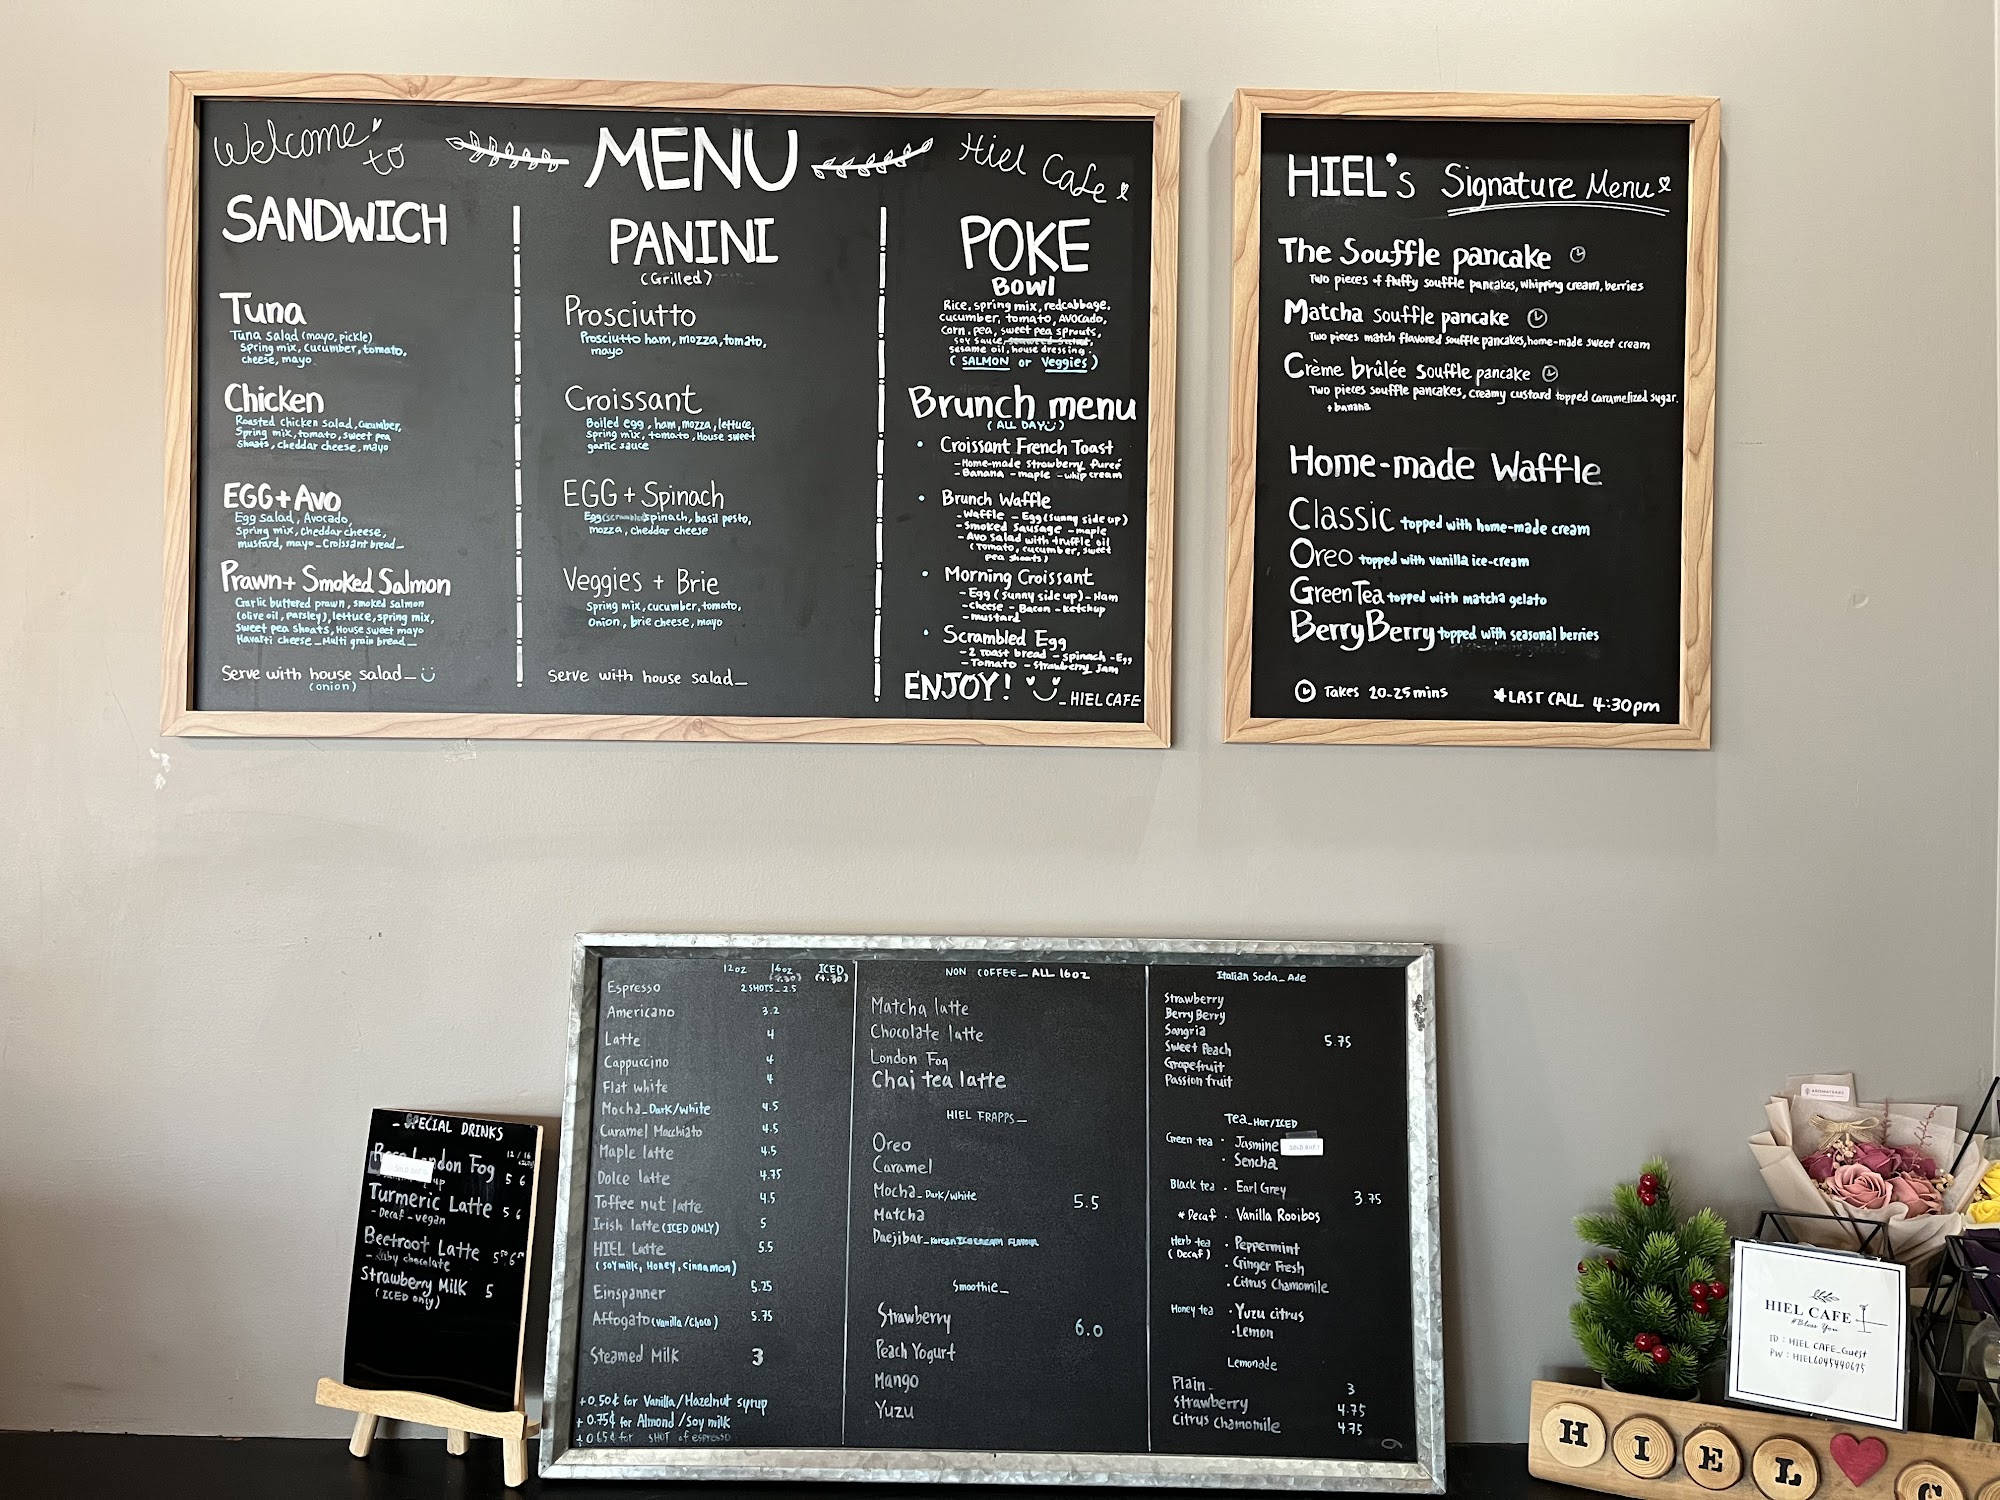 Welcome to
MENU
Hiel Cafe
SANDWICH
Tuna
Tuna salad (mayo, pickle)
Spring mix, cucumber, tomato,
cheese, mayo
Chicken
Roasted chicken salad, cucumber,
Spring mix, tomato, sweet pea
shoots, cheddar cheese, mayo
EGG+Avo
Egg salad, Avocado,
Spring mix, cheddar cheese,
mustard, mayo_Croissant bread_
Prawn+ Smoked Salmon
Garlic buttered prawn, smoked salmon
(olive oil, parsley), lettuce, spring mix,
sweet pea shoats, House sweet mayo
Havarti cheese_Multi grain bread_
Serve with house salad_
(onion)
PANINI
(Grilled)
Prosciutto
Prosciutto ham, mozza, tomato,
mayo
Croissant
Boiled egg, ham, mozza, lettuce,
Spring mix, tomato, House sweet
garlic sauce
EGG + Spinach
Egg(scrambled)spinach, basil pesto,
mozza, cheddar cheese
Veggies + Brie
Spring mix, cucumber, tomato,
Onion, brie cheese, mayo
Serve with house salad_
POKE
Bowl
Rice, spring mix, redcabbage.
cucumber, tomato, Avocado,
corn. pea, sweet pea sprouts,
soy sauce,
sesame oil, house dressing.
( SALMON or Veggies )
Brunch menu
(ALL DAY)
• Croissant French Toast
-Home-made strawberry Pureé
-Banana -maple -whip cream
• Brunch Waffle
-Waffle -Egg(sunny side up)
-Smoked sausage -maple
-Avo salad with truffle oil
(Tomato, cucumber, sweet
pea shoats)
• Morning Croissant
-Egg (sunny side up)-Ham
-cheese -Bacon -ketchup
-mustard
• Scrambled Egg
-2 toast bread -spinach -Egg
-Tomato -strawberry Jam
ENJOY!
_HIELCAFE
HIEL's Signature Menu
The Souffle pancake
Two pieces of fluffy souffle pancakes, whipping cream, berries
Matcha souffle pancake
Two pieces match flavored souffle pancakes, home-made sweet cream
Crème brûlée Souffle pancake
Two pieces souffle pancakes, creamy custard topped caramelized sugar.
+banana
Home-made Waffle
Classic topped with home-made cream
Oreo topped with vanilla ice-cream
GreenTea topped with matcha gelato
BerryBerry topped with seasonal berries
Takes 20-25mins
*LAST CALL 4:30pm
_SPECIAL DRINKS
12 / 16
London Fog 5 6
Turmeric Latte 5 6
- Decaf - vegan
Beetroot Latte 5.50 6.50
- Ruby chocolate
Strawberry Milk 5
(ICED only)
12oz 16oz ICED
(+.30)
Espresso 2 SHOTS_2.5
Americano 3.2
Latte 4
Cappuccino 4
Flat white 4
Mocha_Dark/White 4.5
Caramel Macchiato 4.5
Maple latte 4.5
Dolce latte 4.75
Toffee nut latte 4.5
Irish latte(ICED ONLY) 5
HIEL Latte 5.5
(Soymilk, Honey, cinnamon)
Einspanner 5.25
Affogato(vanilla/choco) 5.75
Steamed Milk 3
+0.50¢ for Vanilla/Hazelnut syrup
+ 0.75¢ for Almond /Soy milk
+ 0.65¢ for SHOT of espresso
NON COFFEE_ ALL 16OZ
Matcha latte
Chocolate latte
London Fog
Chai tea latte
HIEL FRAPPS_
Oreo
Caramel
Mocha_Dark/white 5.5
Matcha
Daejibar_Korean Icecream Flavour
Smoothie_
Strawberry 6.0
Peach Yogurt
Mango
Yuzu
Italian Soda_ Ade
Strawberry
BerryBerry
Sangria
Sweet Peach 5.75
Grapefruit
Passion fruit
Tea_HOT/ICED
Green tea · Jasmine SOLD OUT!
· Sencha
Black tea · Earl Grey 3.75
*Decaf · Vanilla Rooibos
Herb tea · Peppermint
(Decaf) · Ginger Fresh
· Citrus Chamomile
Honey tea · Yuzu citrus
· Lemon
Lemonade
Plain_ 3
Strawberry 4.75
Citrus Chamomile 4.75
HIEL CAFE
#Bless You
ID : HIEL CAFE_Guest
PW : HIEL6045440675
HIEL C